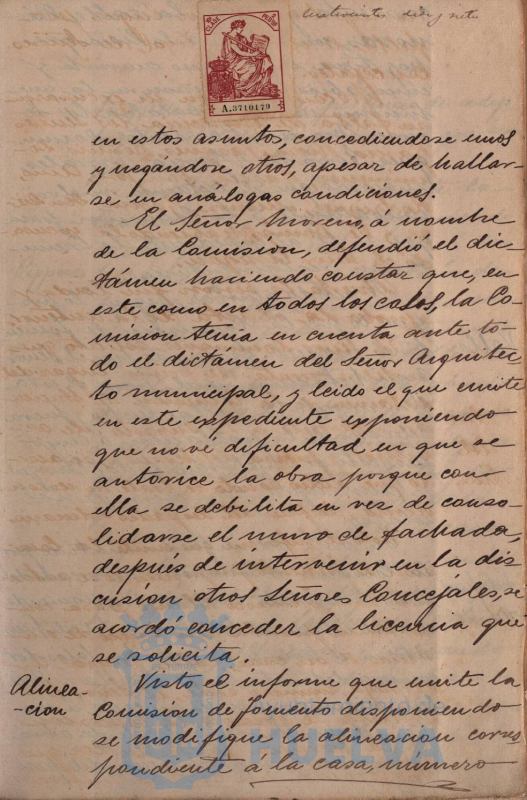 cuatrocientos diez y siete
CLASE
A.3710179
en estos asuntos, concediendose unos
y negándose otros, apesar de hallar-
se en análogas condiciones.
El Señor Moreno, á nombre
de la Comision, defendió el dic-
támen haciendo constar que, en
este como en todos los casos, la Co-
mision tenia en cuenta ante to-
do el dictámen del Señor Arquitec-
to municipal, y leido el que emite
en este expediente exponiendo
que no vé dificultad en que se
autorice la obra porque con
ella se debilita en vez de conso-
lidarse el muro de fachada,
después de intervenir en la dis-
cusion otros Señores Concejales, se
acordó conceder la licencia que
se solicita.
Alinea-
-cion
Visto el informe que emite la
Comision de fomento disponiendo
se modifique la alineacion corres
pondiente á la casa, número
HUELVA